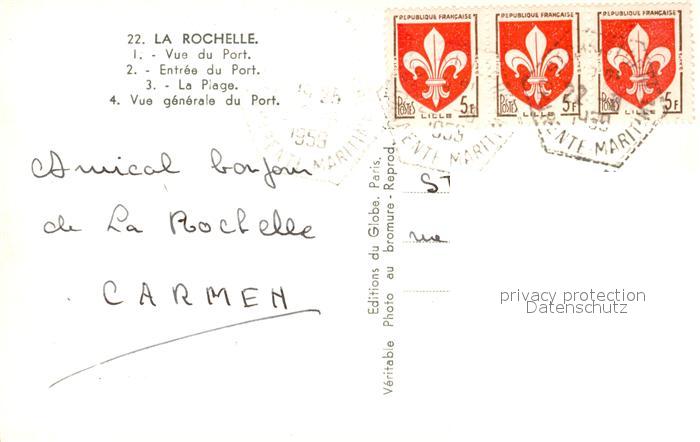 22. LA ROCHELLE.
1. - Vue du Port.
2. - Entrée du Port.
3. - La Plage.
4. Vue générale du Port.
Amical bonjour
de La Rochelle
CARMEN
Editions du Globe, Paris.
Véritable Photo au bromure - Reprod.
REPUBLIQUE FRANÇAISE
POSTES 5F
LILLE
REPUBLIQUE FRANÇAISE
POSTES 5F
LILLE
REPUBLIQUE FRANÇAISE
POSTES 5F
1959
ENTE MARITIM
1959
ENTE MARITIM
1959
ENTE MARITIM
ST
rue
privacy protection
Datenschutz